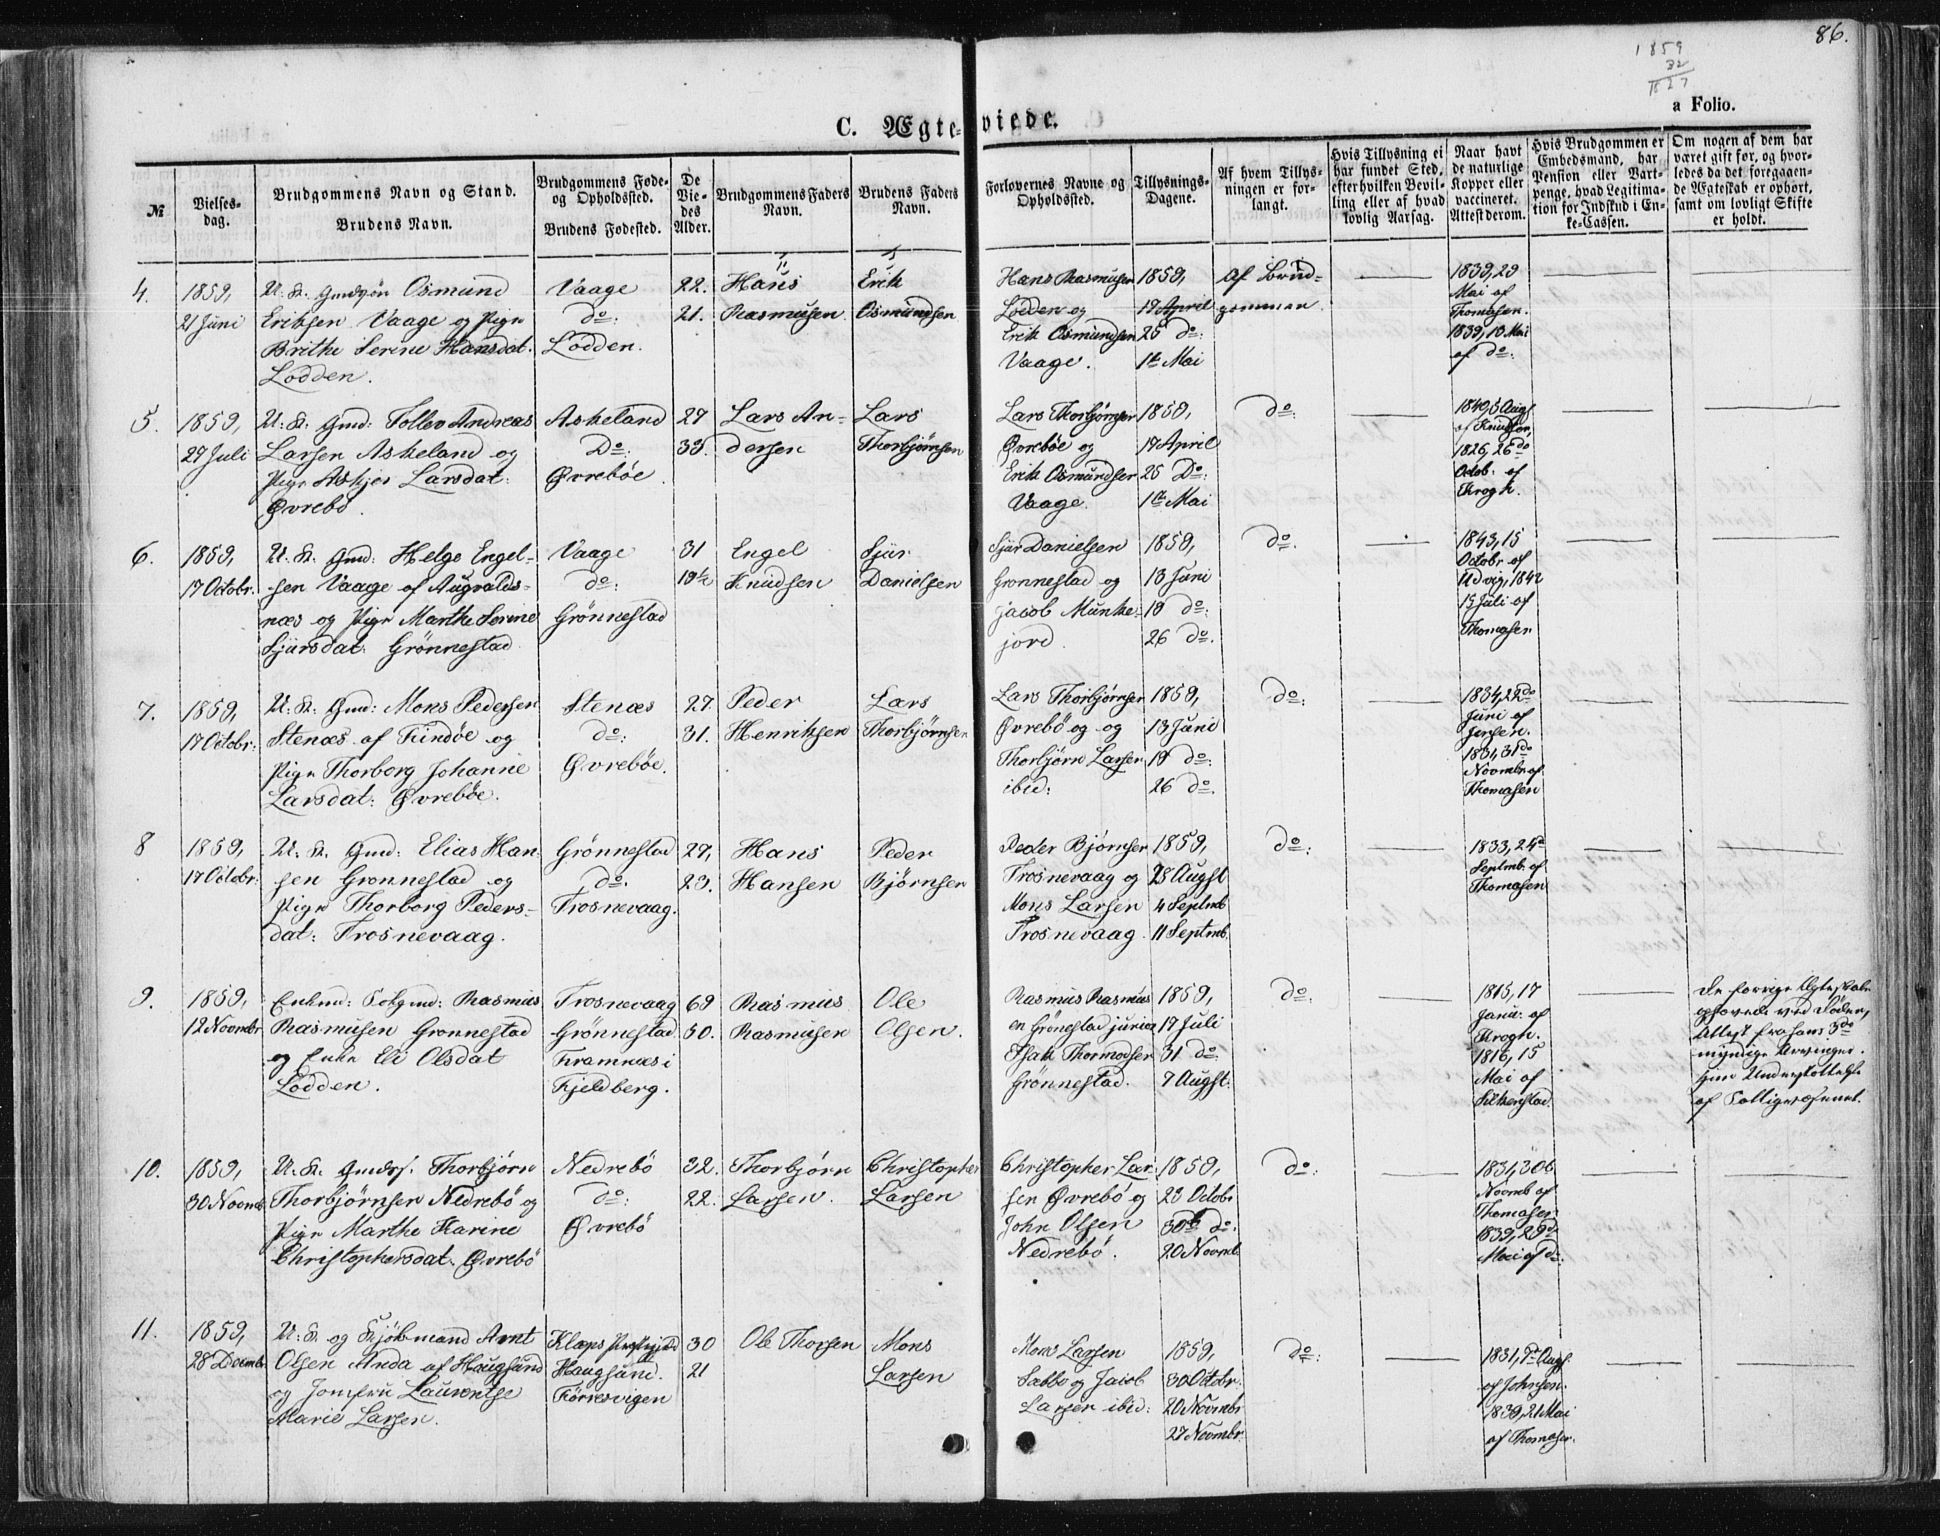 86.
1859
32
1827
a Folio.
C. Ægteviede.
№
Vielses-
dag.
Brudgommens Navn og Stand.
Brudens Navn.
Brudgommens Føde-
og Opholdssted.
Brudens Fødested.
De
Vie-
des
Alder.
Brudgommens Faders
Navn.
Brudens Faders
Navn.
Forlovernes Navne og
Opholdssted.
Tillysnings-
Dagene.
Af hvem Tillys-
ningen er for-
langt.
Hvis Tillysning ei
har fundet Sted,
efter hvilken Bevil-
ling eller af hvad
lovlig Aarsag.
Naar havt
de naturlige
Kopper eller
vaccineret.
Attest derom.
Hvis Brudgommen er
Embedsmand, har
Pension eller Vart-
penge, hvad Legitima-
tion for Indskud i En-
ke-Cassen.
Om nogen af dem har
været gift før, og hvor-
ledes da det foregaaen-
de Ægteskab er ophørt,
samt om lovligt Skifte
er holdt.
4.
1859,
21 Juni
U: K: Osmund
Eriksen Vaage og Pige
Brithe Serine Hansdat.
Lodden.
Vaage
do:
Lodden.
22.
21.
Hans
Rasmusen
Erik
Osmundsen
Hans Rasmusen
Lodden og
Erik Osmundsen
Vaage.
1859,
17 April
25 do:
1te Mai
Af Brud-
gommen
1839, 29
Mai af
Thomasen.
1839, 10 Mai
af do:
5.
1859,
27 Juli
U: K: Gmd: Tollev Andreas
Larsen Askeland og
Pige Larsdat:
Øvrebø.
Askeland
Do:
Øvrebøe.
27
33.
Lars An-
dersen
Lars
Thorbjørnsen
Lars Thorbjørnsen
Øvrebøe og
Erik Osmundsen
Vaage.
1859,
17 April
25 Do:
1te Mai
do:
1840, 5 Augs.
af Knudsen,
1826, 26 do
Octob: af
Krogh.
6.
1859,
17 Octobr.
U: K: Gmd: Helge Engel-
sen Vaage af Augvalds-
næs og Pige Marthe Serine
Sjursdat: Grønnestad
Vaage
do:
Grønnestad
31
19½
Engel
Knudsen
Sjur
Danielsen
Sjur Danielsen
Grønnestad og
Jacob Munke-
jord.
1859,
13 Juni
19 do:
26 do:
do:
1843, 15
Octobr af
Udvig, 1842
15 Juli af
Thomasen
7.
1859,
17 Octobr:
U: K: Gmd: Mons Pedersen
Stenæs af Findøe og
Pige Thorborg Johanne
Larsdat: Øvrebøe.
Stenæs
do:
Øvrebøe.
27.
31.
Peder
Henriksen
Lars
Thorbjørnsen
Lars Thorbjørnsen
Øvrebø og og
Thorbjørn Larsen
ibid:
1859,
13 Juni
19 do:
26 do:
do:
1834, 22 do
Juni af
Jensen.
1831, 31 do
Novmbr af
Thomasen
8
1859,
17 Octobr:
U: K: Gmd: Elias Han-
sen Grønnestad og
Pige Thorborg Peders-
dat: Trosnevaag.
Grønnestad
do:
Trosnevaag.
27,
23.
Hans
Hansen
Peder
Bjørnsen
Peder Bjørnsen
Trosnevaag og
Mons Larsen
Trosnevaag
1859,
28 Augst
4 Septmb
11 Septmb.
do:
1833, 24 d
Septmb. af
Thomasen
9.
1859,
12 Novmbr
Enkmd: Rasmus
Rasmusen Grønnestad
og Enke Eli Olsdat
Lodden.
Trosnevaag
Grønnestad
Framnæs i
Fjeldberg.
69
50.
Rasmus
Rasmusen
Ole
Olsen.
Rasmus Rasmus
en Grønestad junior
Isak Thormodsen
Grønnestad.
1859,
17 Juli
31 do:
7 Augst.
do:
1815, 17
Janu: af
Krogh.
1816, 15
Mai af
De forrige Ægteskabe
ophævede ved Døden,
Attest fra hans 3de
myndige Arvinger.
Hun Understøttelse
af Fattigvæsenet.
10.
1859,
30 Novmb
U: K: Thorbjørn
Thorbjørnsen Nedrebø og
Pige Marthe Karine
Christophersdat. Øvrebø
Nedrebø
do:
Øvrebø
32.
22.
Thorbjørn
Larsen.
Christopher
Larsen
Christopher Lar-
sen Øvrebø og
John Olsen
Nedrebø.
1859,
23 Octobr
30 do:
20 Novmb.
do:
Novmb af
Thomasen
1839, 29 d
Mai af do:
11.
1859,
28 Decmbr
U: K: og Kjøbmand Arnt
Olsen Anda af Haugsund
og Jomfru Laurentse
Marie Larsen.
Klæps
Haugsund.
Førresvigen
30
21
Ole Thorsen
Mons
Larsen
Mons Larsen
Sabbø og Jacob
Larsen ibid:
1859,
30 Octobr.
20 Novmbr
27 Novmbr.
do:
1831, 7d Augs.
af Johnsen.
1839, 21 Mai
af Thomasen.